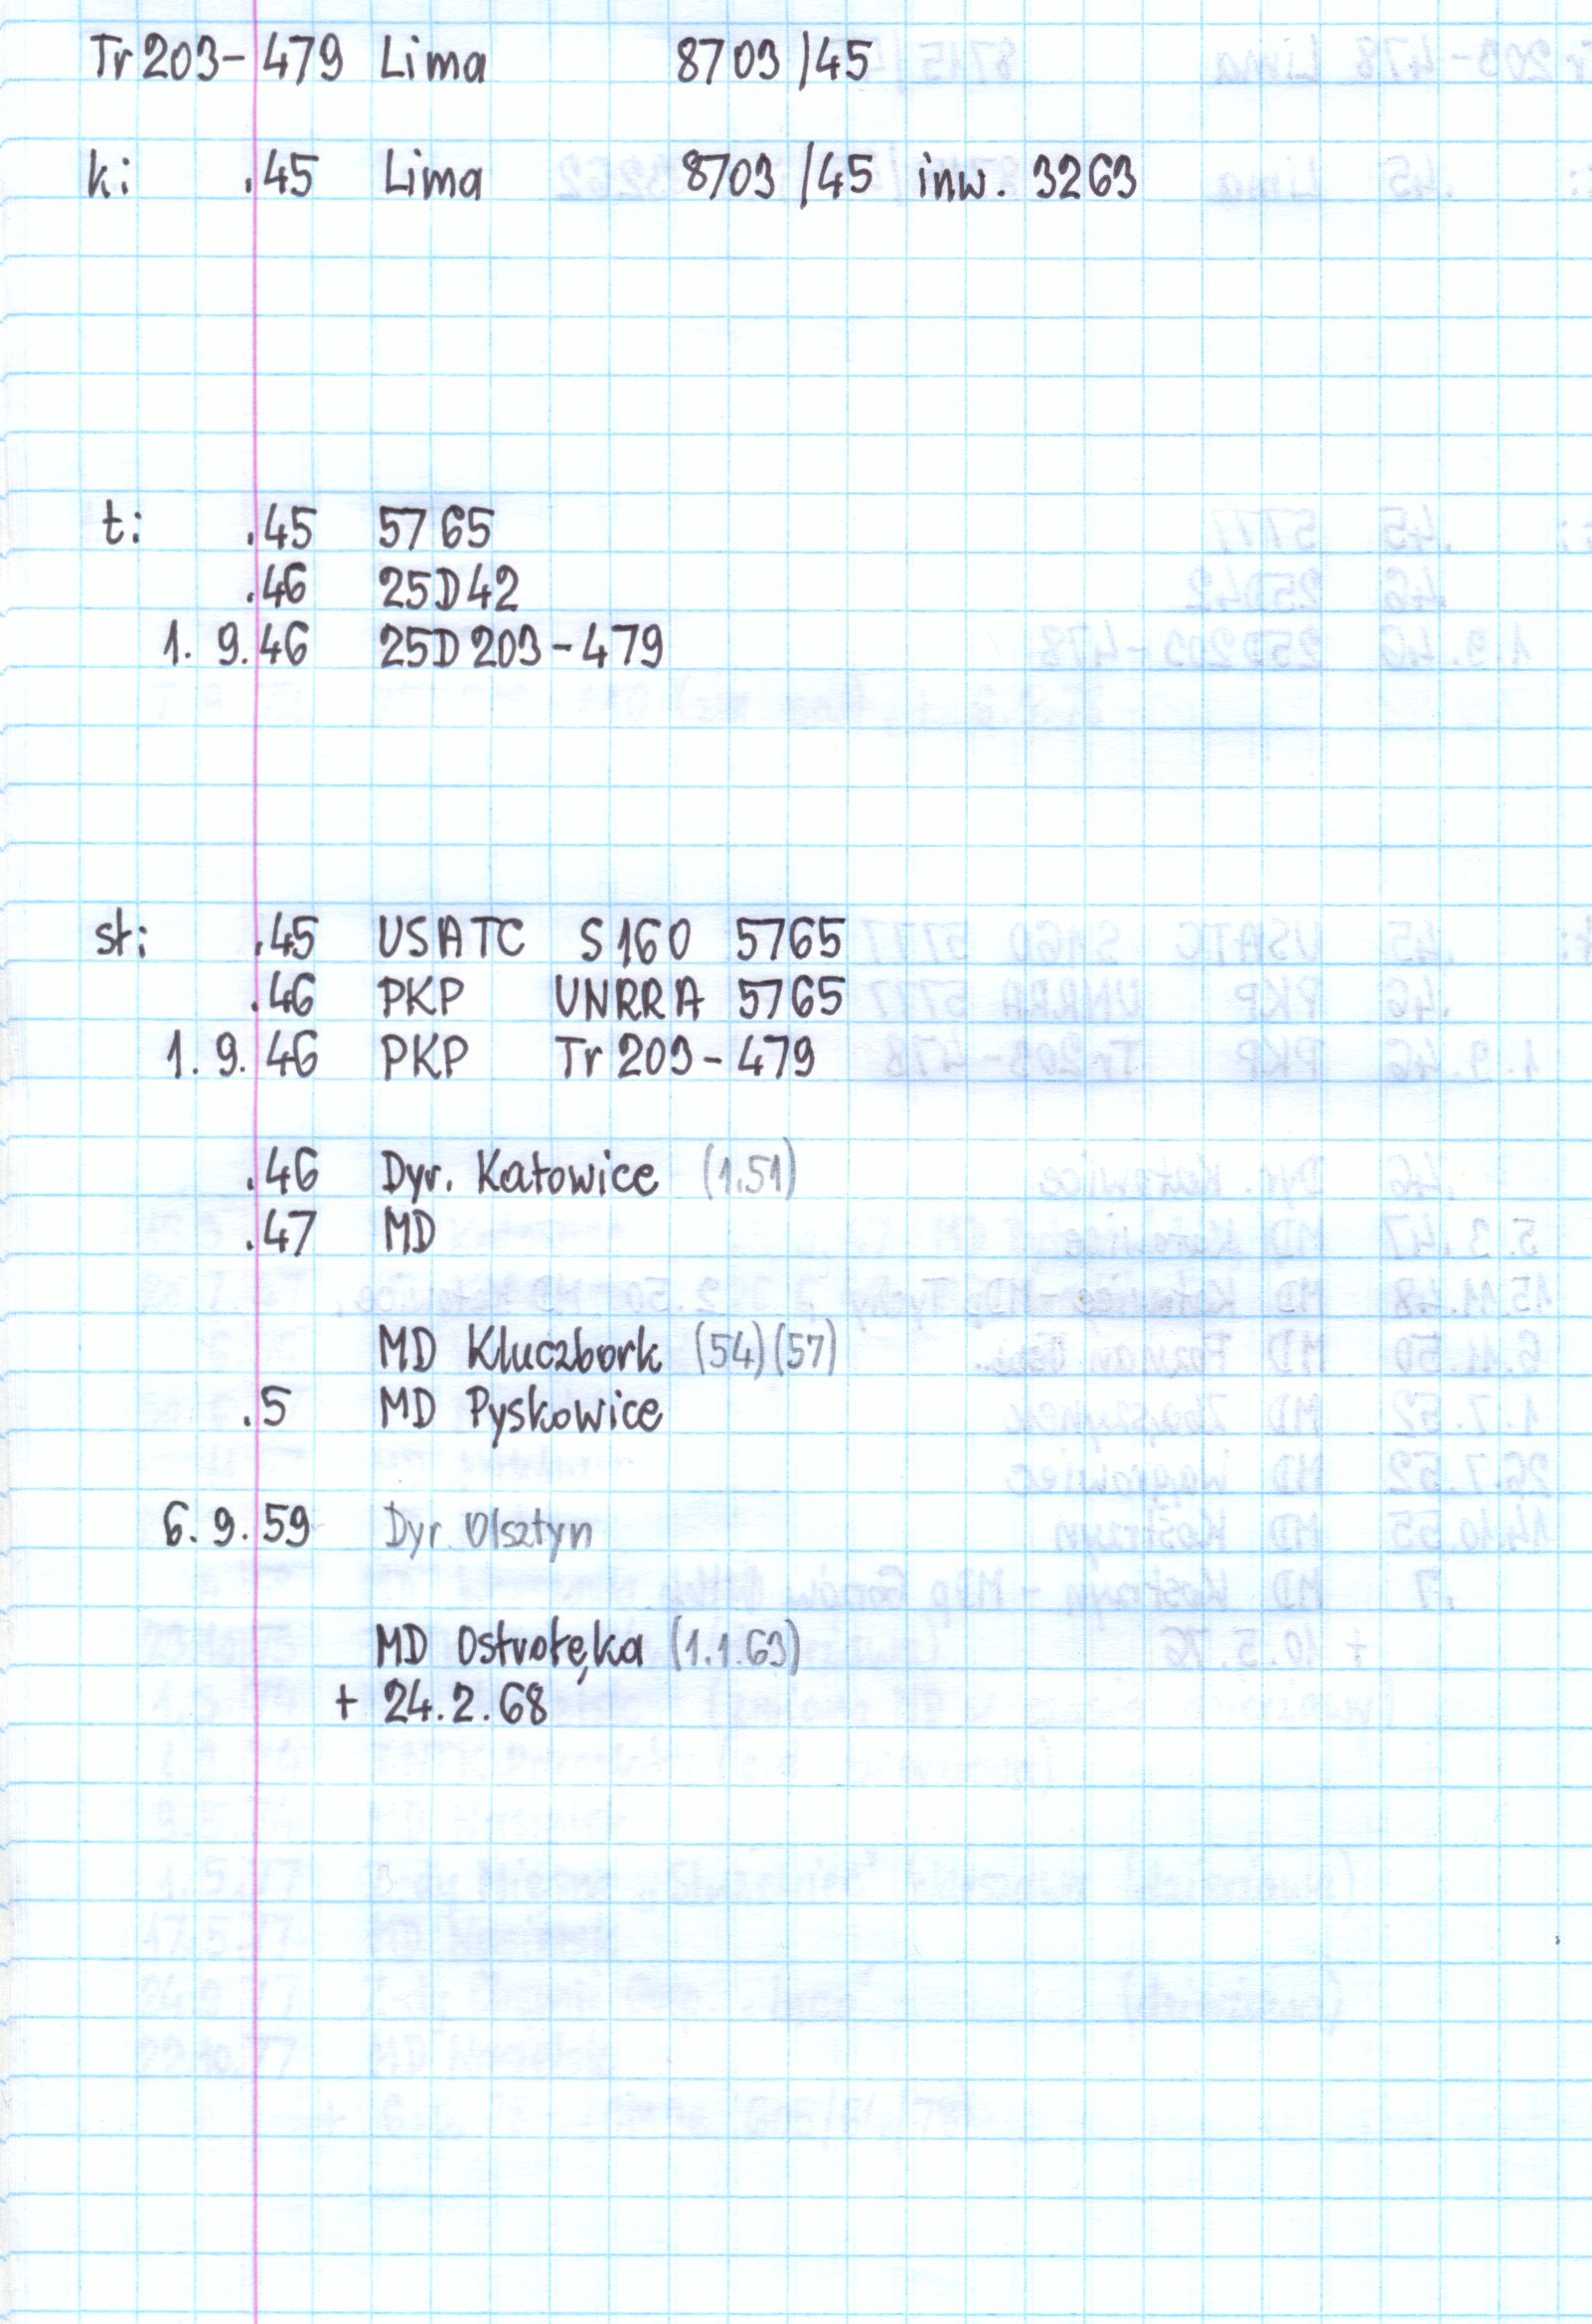 Tr203-479 Lima 8703/45
k: .45 Lima 8703/45 inw. 3263
t: .45 5765
.46 25D42
1. 9.46 25D203-479
st: .45 USATC S160 5765
.46 PKP UNRRA 5765
1. 9. 46 PKP Tr203-479
.46 Dyr. Katowice (1.51)
.47 MD
MD Kluczbork (54)(57)
.5 MD Pyskowice
6. 9. 59 Dyr. Olsztyn
MD Ostrołęka (1.1.63)
+ 24.2.68